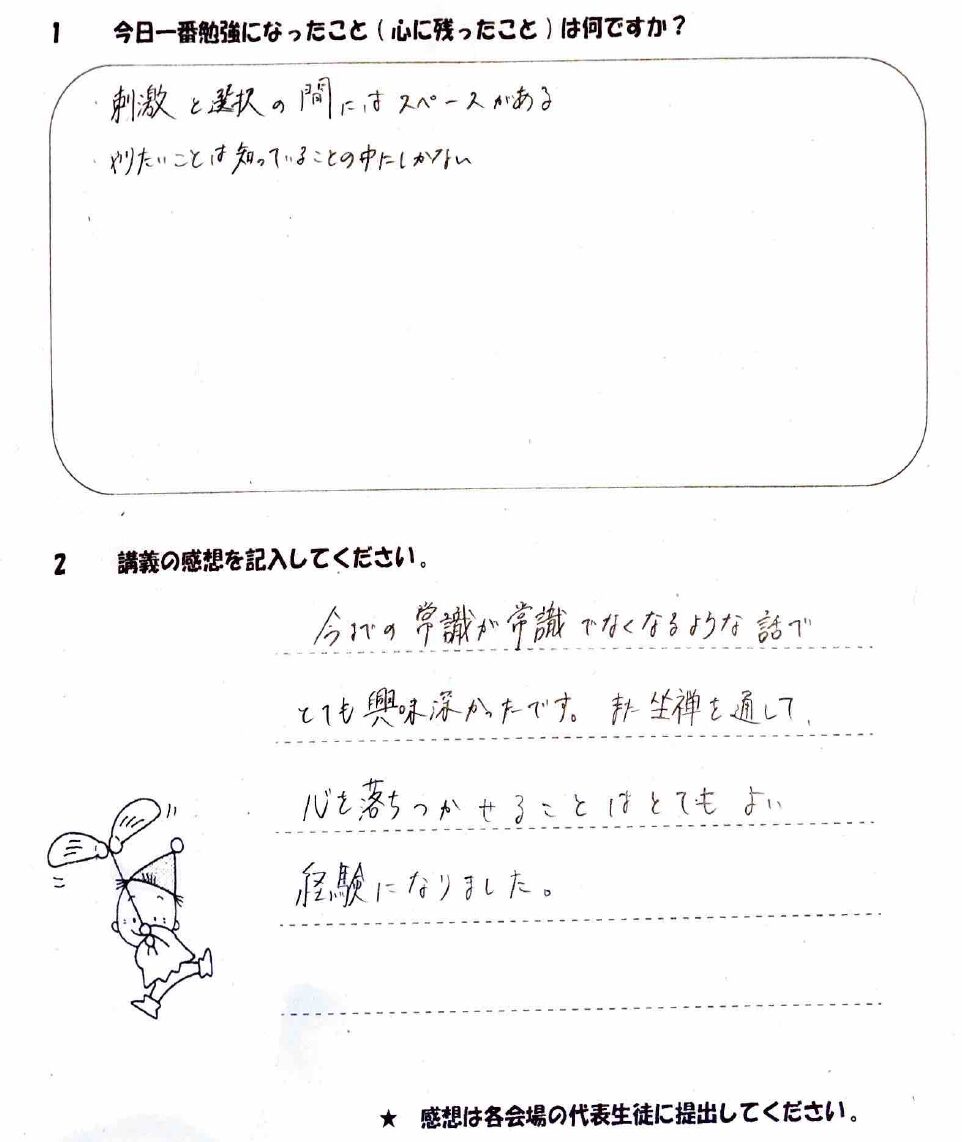 1 今日一番勉強になったこと（心に残ったこと）は何ですか？
・刺激と選択の間にはスペースがある
・やりたいことは知っていることの中にしかない
2 講義の感想を記入してください。
今までの常識が常識でなくなるような話で
とても興味深かったです。また坐禅を通して、
心を落ちつかせることはとてもよい
経験になりました。
★ 感想は各会場の代表生徒に提出してください。